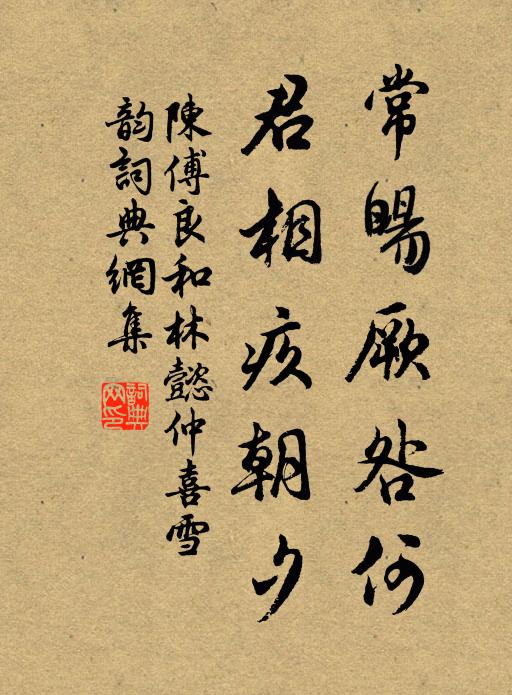 常暘厥咎何
君相疚朝夕
陳傅良和林懿仲喜雪
韵詞典網集
詞典网印